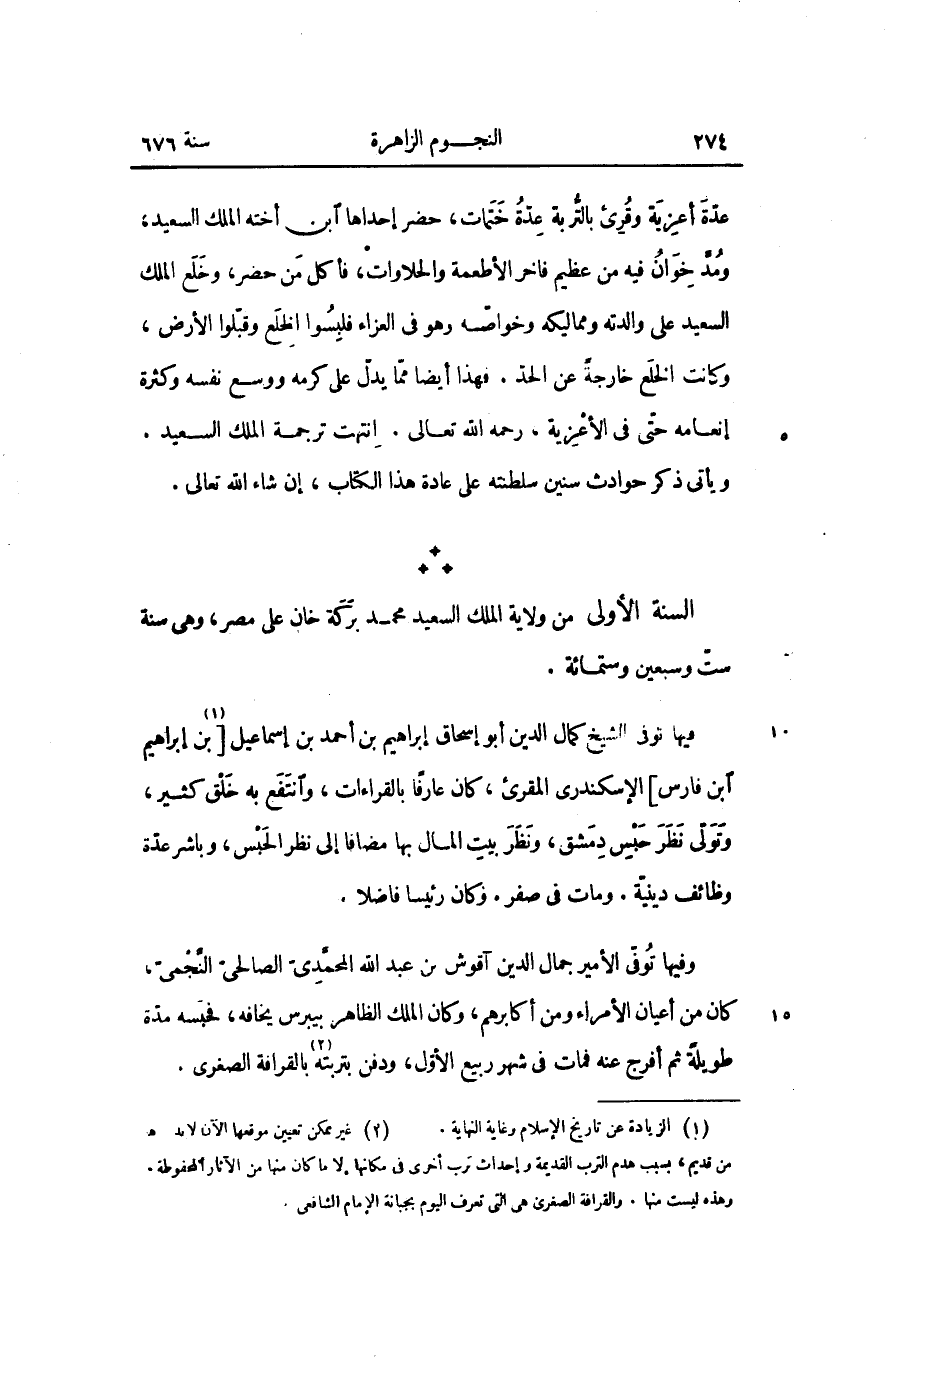 ٢٧٤ النجوم الزاهرة سنة ٦٧٦
عدّةَ أعزِيَة وقُرِئ بالتُّربة عِدّةُ خَتَمات، حضر إحداها آبن أخته الملك السعيد،
ومُدَّ خِوَانُ فيه من عظيم فاخر الأطعمة والحلاوات، فأكل مَن حضر، وخَلَع الملك
السعيد على والدته ومماليكه وخواصّه وهو فى العزاء فلبِسُوا الخِلَع وقبّلوا الأرض،
وكانت الخِلَع خارجةً عن الحدّ. فهذا أيضا ممّا يدلّ على كرمه ووسع نفسه وكثرة
إنعامه حتّى فى الأعْزِية. رحمه الله تعالى. إنتهت ترجمة الملك السعيد. ٥
ويأتى ذكر حوادث سنين سلطنته على عادة هذا الكتاب، إن شاء الله تعالى.
السنة الأولى من ولاية الملك السعيد محمد بَرَكَة خان على مصر، وهى سنة
ستّ وسبعين وستمائة.
فيها توفى الشيخ كمال الدين أبو إسحاق إبراهيم بن أحمد بن إسماعيل [(١) بن إبراهيم ١٠
آبن فارس] الإسكندرى المقرئ، كان عارفًا بالقراءات، وآنتَفَع به خَلْق كثير،
وتَوَلَّى نَظَرَ حَبْسِ دِمَشق، ونَظَرَ بيتِ المال بها مضافا إلى نظر الحَبْس، وباشر عدّة
وظائف دينيّة. ومات فى صفر. وكان رئيسا فاضلا.
وفيها تُوفّى الأمير جمال الدين آقوش بن عبد الله المحمَّدِىّ الصالحىّ النَّجْمىّ،
كان من أعيان الأمراء ومن أكابرهم، وكان الملك الظاهر بيبرس يخافه، فحبَسه مدّة ١٥
طويلةً ثم أفرج عنه فمات فى شهر ربيع الأوّل، ودفن بتربته(٢) بالقرافة الصغرى.
(١) الزيادة عن تاريخ الإسلام وغاية النهاية. (٢) غير ممكن تعيين موقعها الآن
من قديم، بسبب هدم الترب القديمة وإحداث ترب أخرى فى مكانها إلا ما كان منها من الآثار المحفوظة.
وهذه ليست منها. والقرافة الصغرى هى التى تعرف اليوم بجبانة الإمام الشافعى.